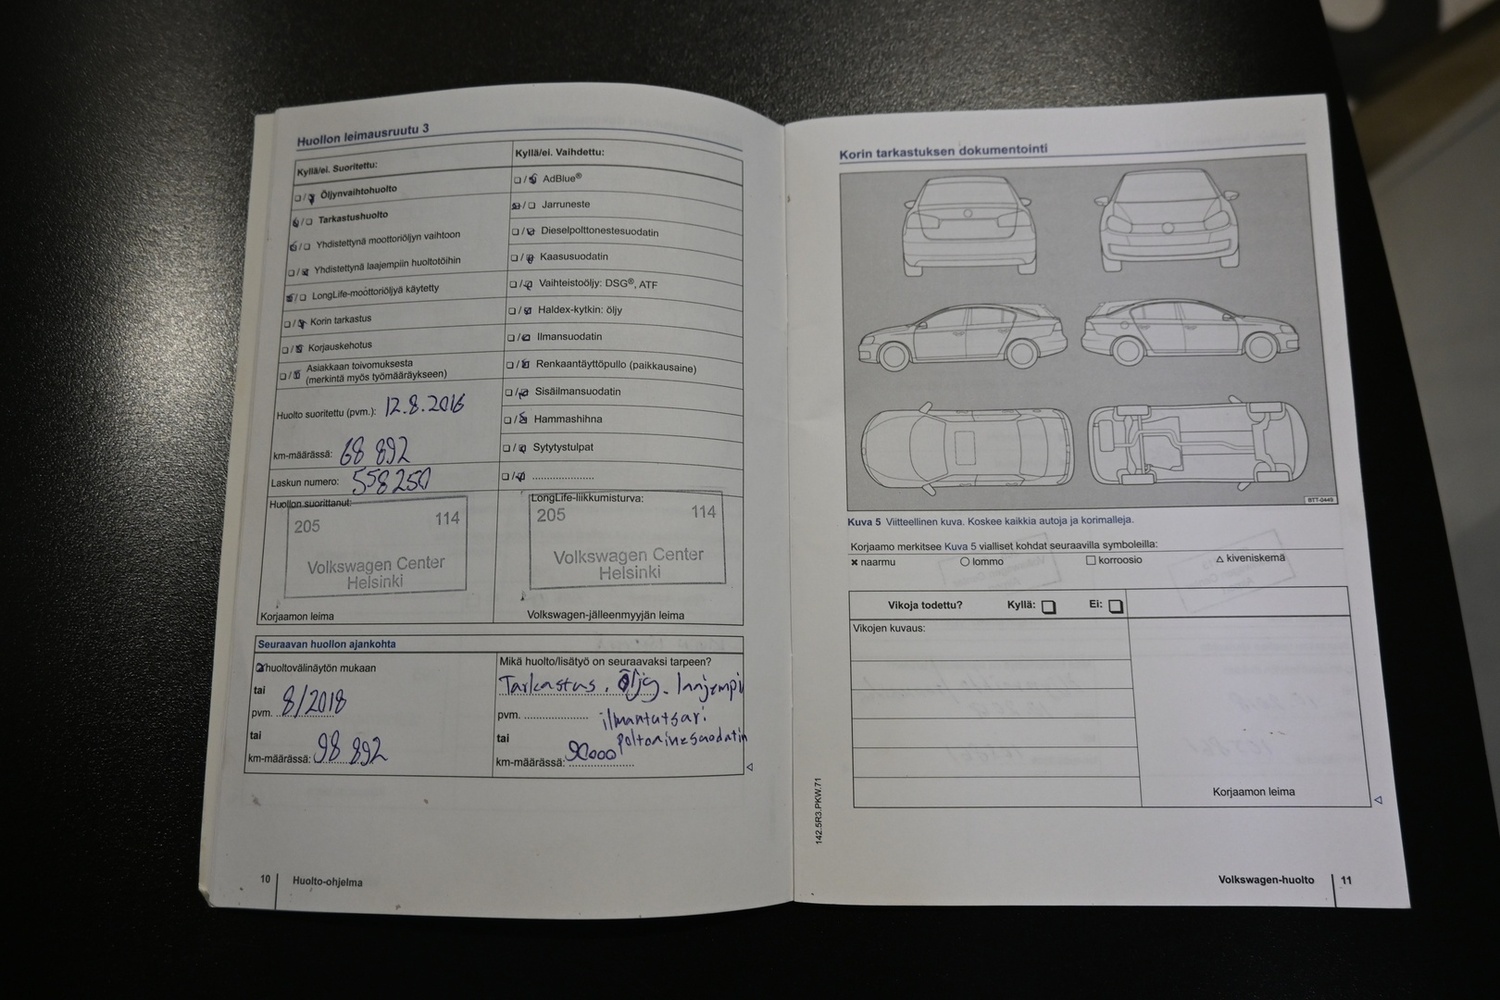 Huollon leimausruutu 3
Kyllä/ei. Suoritettu:
Öljynvaihtohuolto
Tarkastushuolto
Yhdistettynä moottoriöljyn vaihtoon
Yhdistettynä laajempiin huoltotöihin
LongLife-moottoriöljyä käytetty
Korin tarkastus
Korjauskehotus
Asiakkaan toivomuksesta
(merkintä myös työmääräykseen)
Huolto suoritettu (pvm.): 12.8.2016
km-määrässä: 68 892
Laskun numero: 558250
Huollon suorittanut:
205 114
Volkswagen Center
Helsinki
Korjaamon leima
Kyllä/ei. Vaihdettu:
AdBlue®
Jarruneste
Dieselpolttonestesuodatin
Kaasusuodatin
Vaihteistoöljy: DSG®, ATF
Haldex-kytkin: öljy
Ilmansuodatin
Renkaantäyttöpullo (paikkausaine)
Sisäilmansuodatin
Hammashihna
Sytytystulpat
LongLife-liikkumisturva:
205 114
Volkswagen Center
Helsinki
Volkswagen-jälleenmyyjän leima
Seuraavan huollon ajankohta
huoltovälinäytön mukaan
tai
pvm. 8/2018
tai
km-määrässä: 98 892
Mikä huolto/lisätyö on seuraavaksi tarpeen?
Tarkastus, Öljy, laajempi
pvm.
tai
km-määrässä: 90000
10 Huolto-ohjelma
Korin tarkastuksen dokumentointi
BTT-0449
Kuva 5 Viitteellinen kuva. Koskee kaikkia autoja ja korimalleja.
Korjaamo merkitsee Kuva 5 vialliset kohdat seuraavilla symboleilla:
naarmu lommo korroosio kiveniskemä
Vikoja todettu? Kyllä: Ei:
Vikojen kuvaus:
Korjaamon leima
142.5R3.PKW.71
Volkswagen-huolto 11